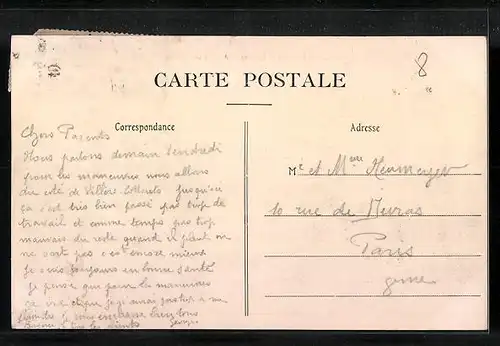 8
CARTE POSTALE
Correspondance
Adresse
Chers Parents
Nous partons demain Vendredi
pour les manœuvres nous allons
du coté de Villers-Cotterets jusqu'ici
ça s'est très bien passé pas trop de
travail et comme temps pas trop
mauvais du reste quand il pleut on
ne sort pas c'est encore mieux
Je suis toujours en bonne santé
je pense que pour les manœuvres
ça
plaindre Je vous embrasse bien tous
Georges
Mr et Mme
10 rue de
Paris